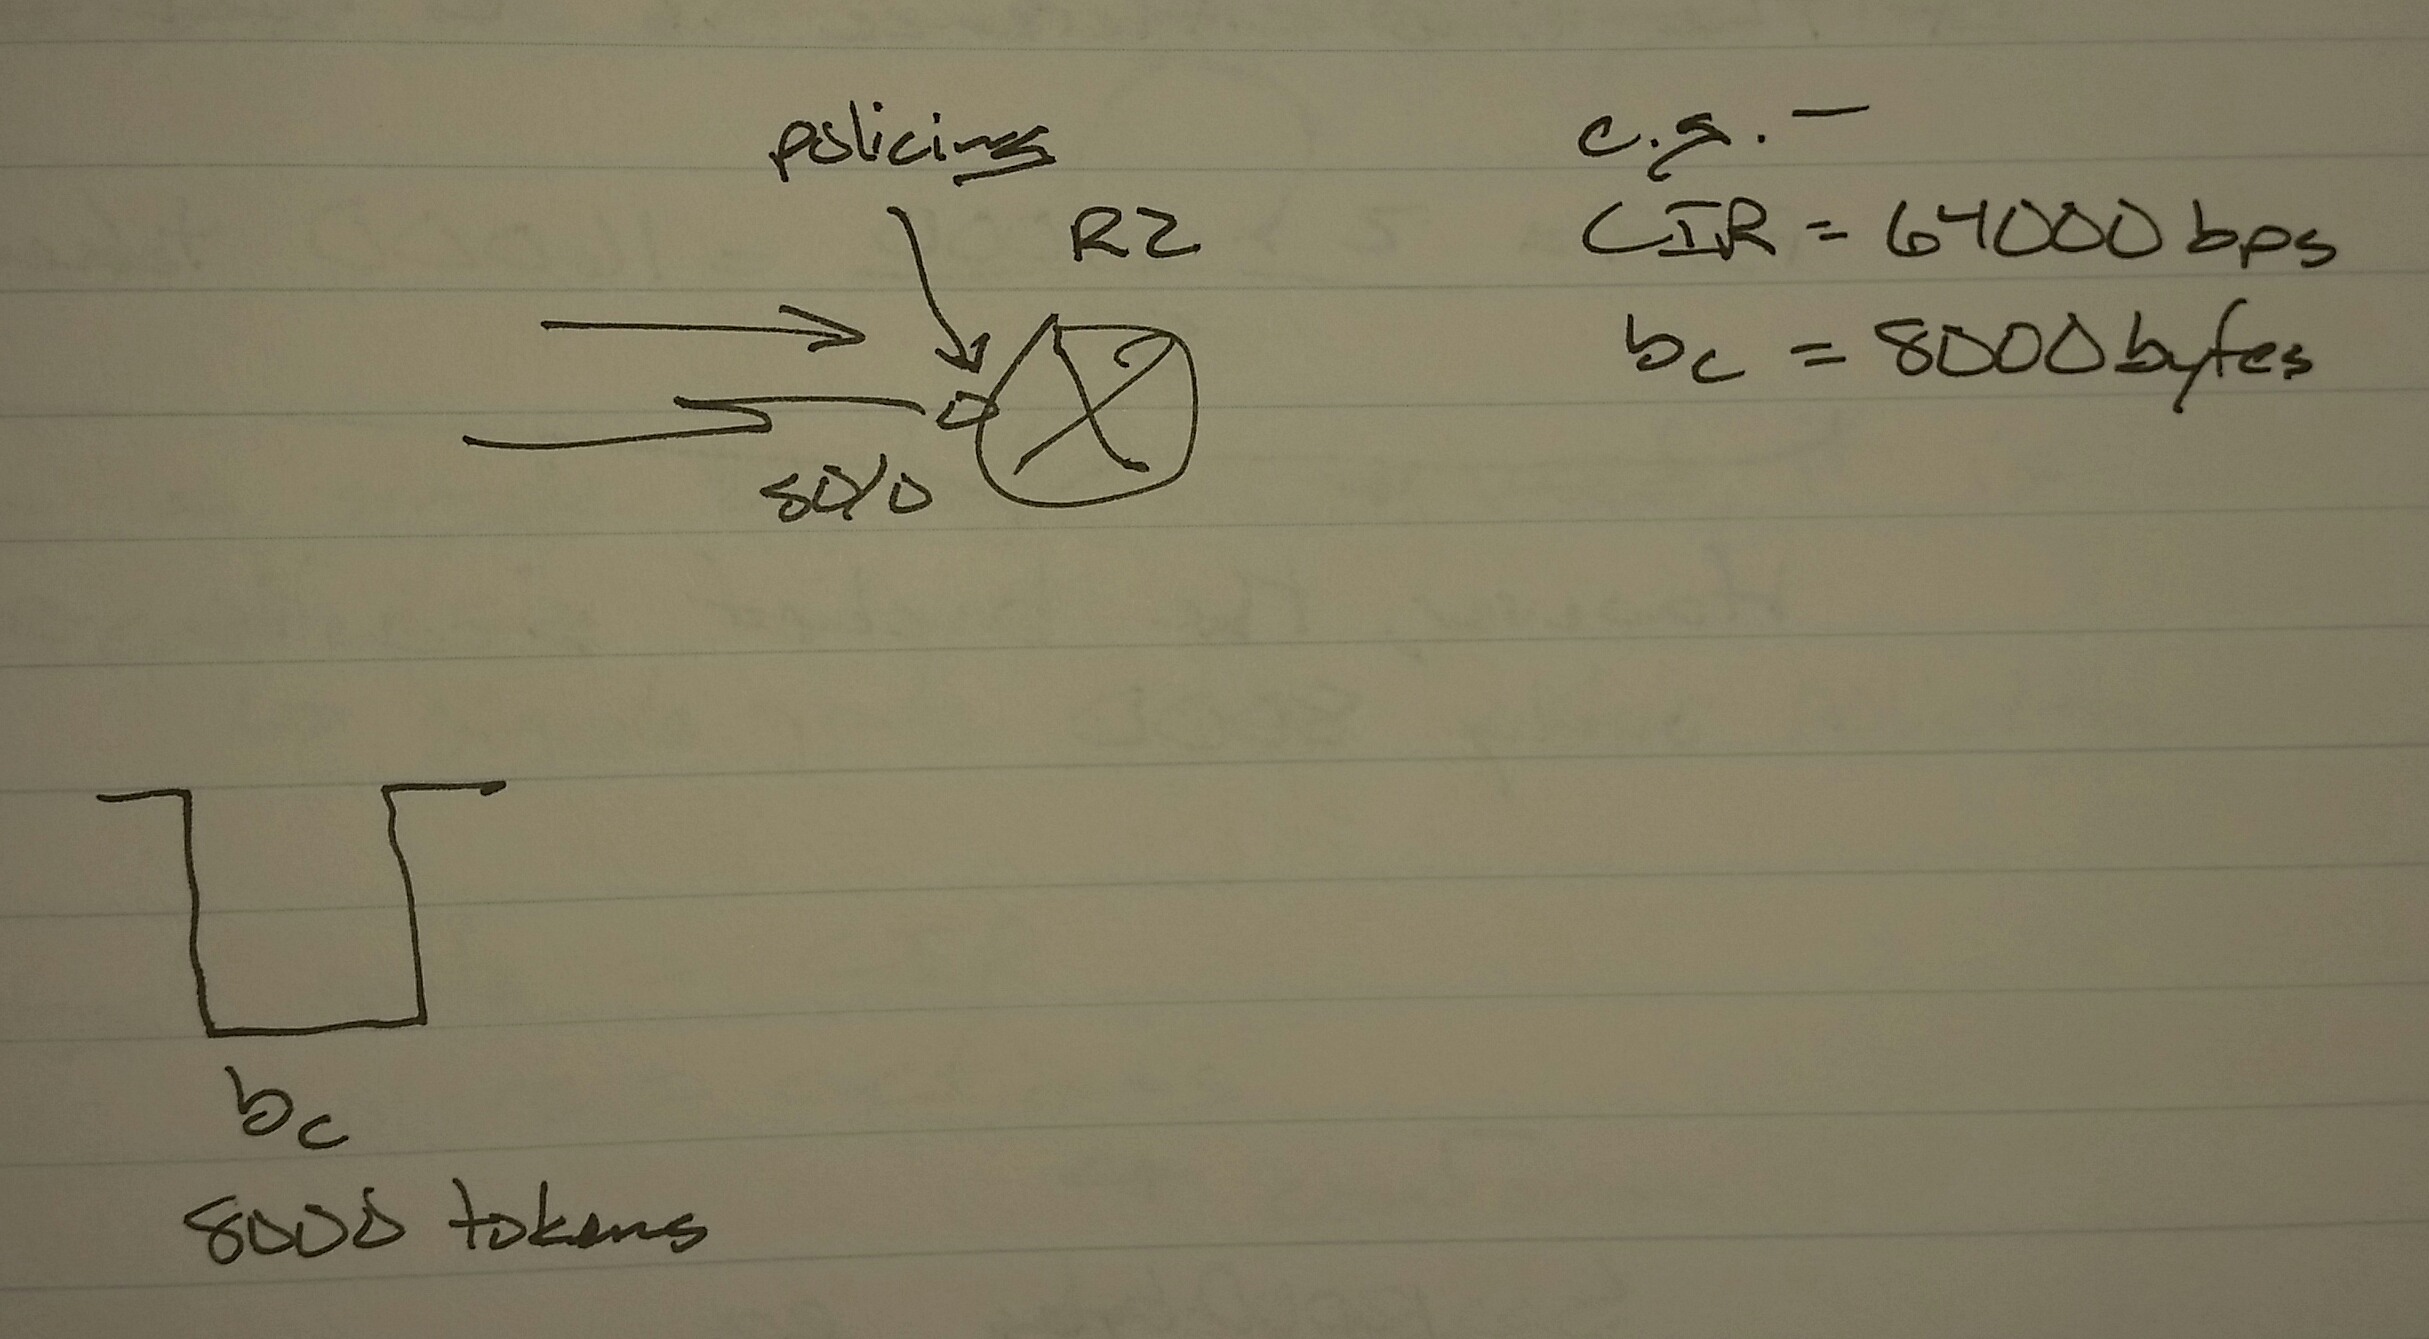 policing
R2
S0/0
e.g. —
CIR = 64000 bps
bc = 8000 bytes
bc
8000 tokens